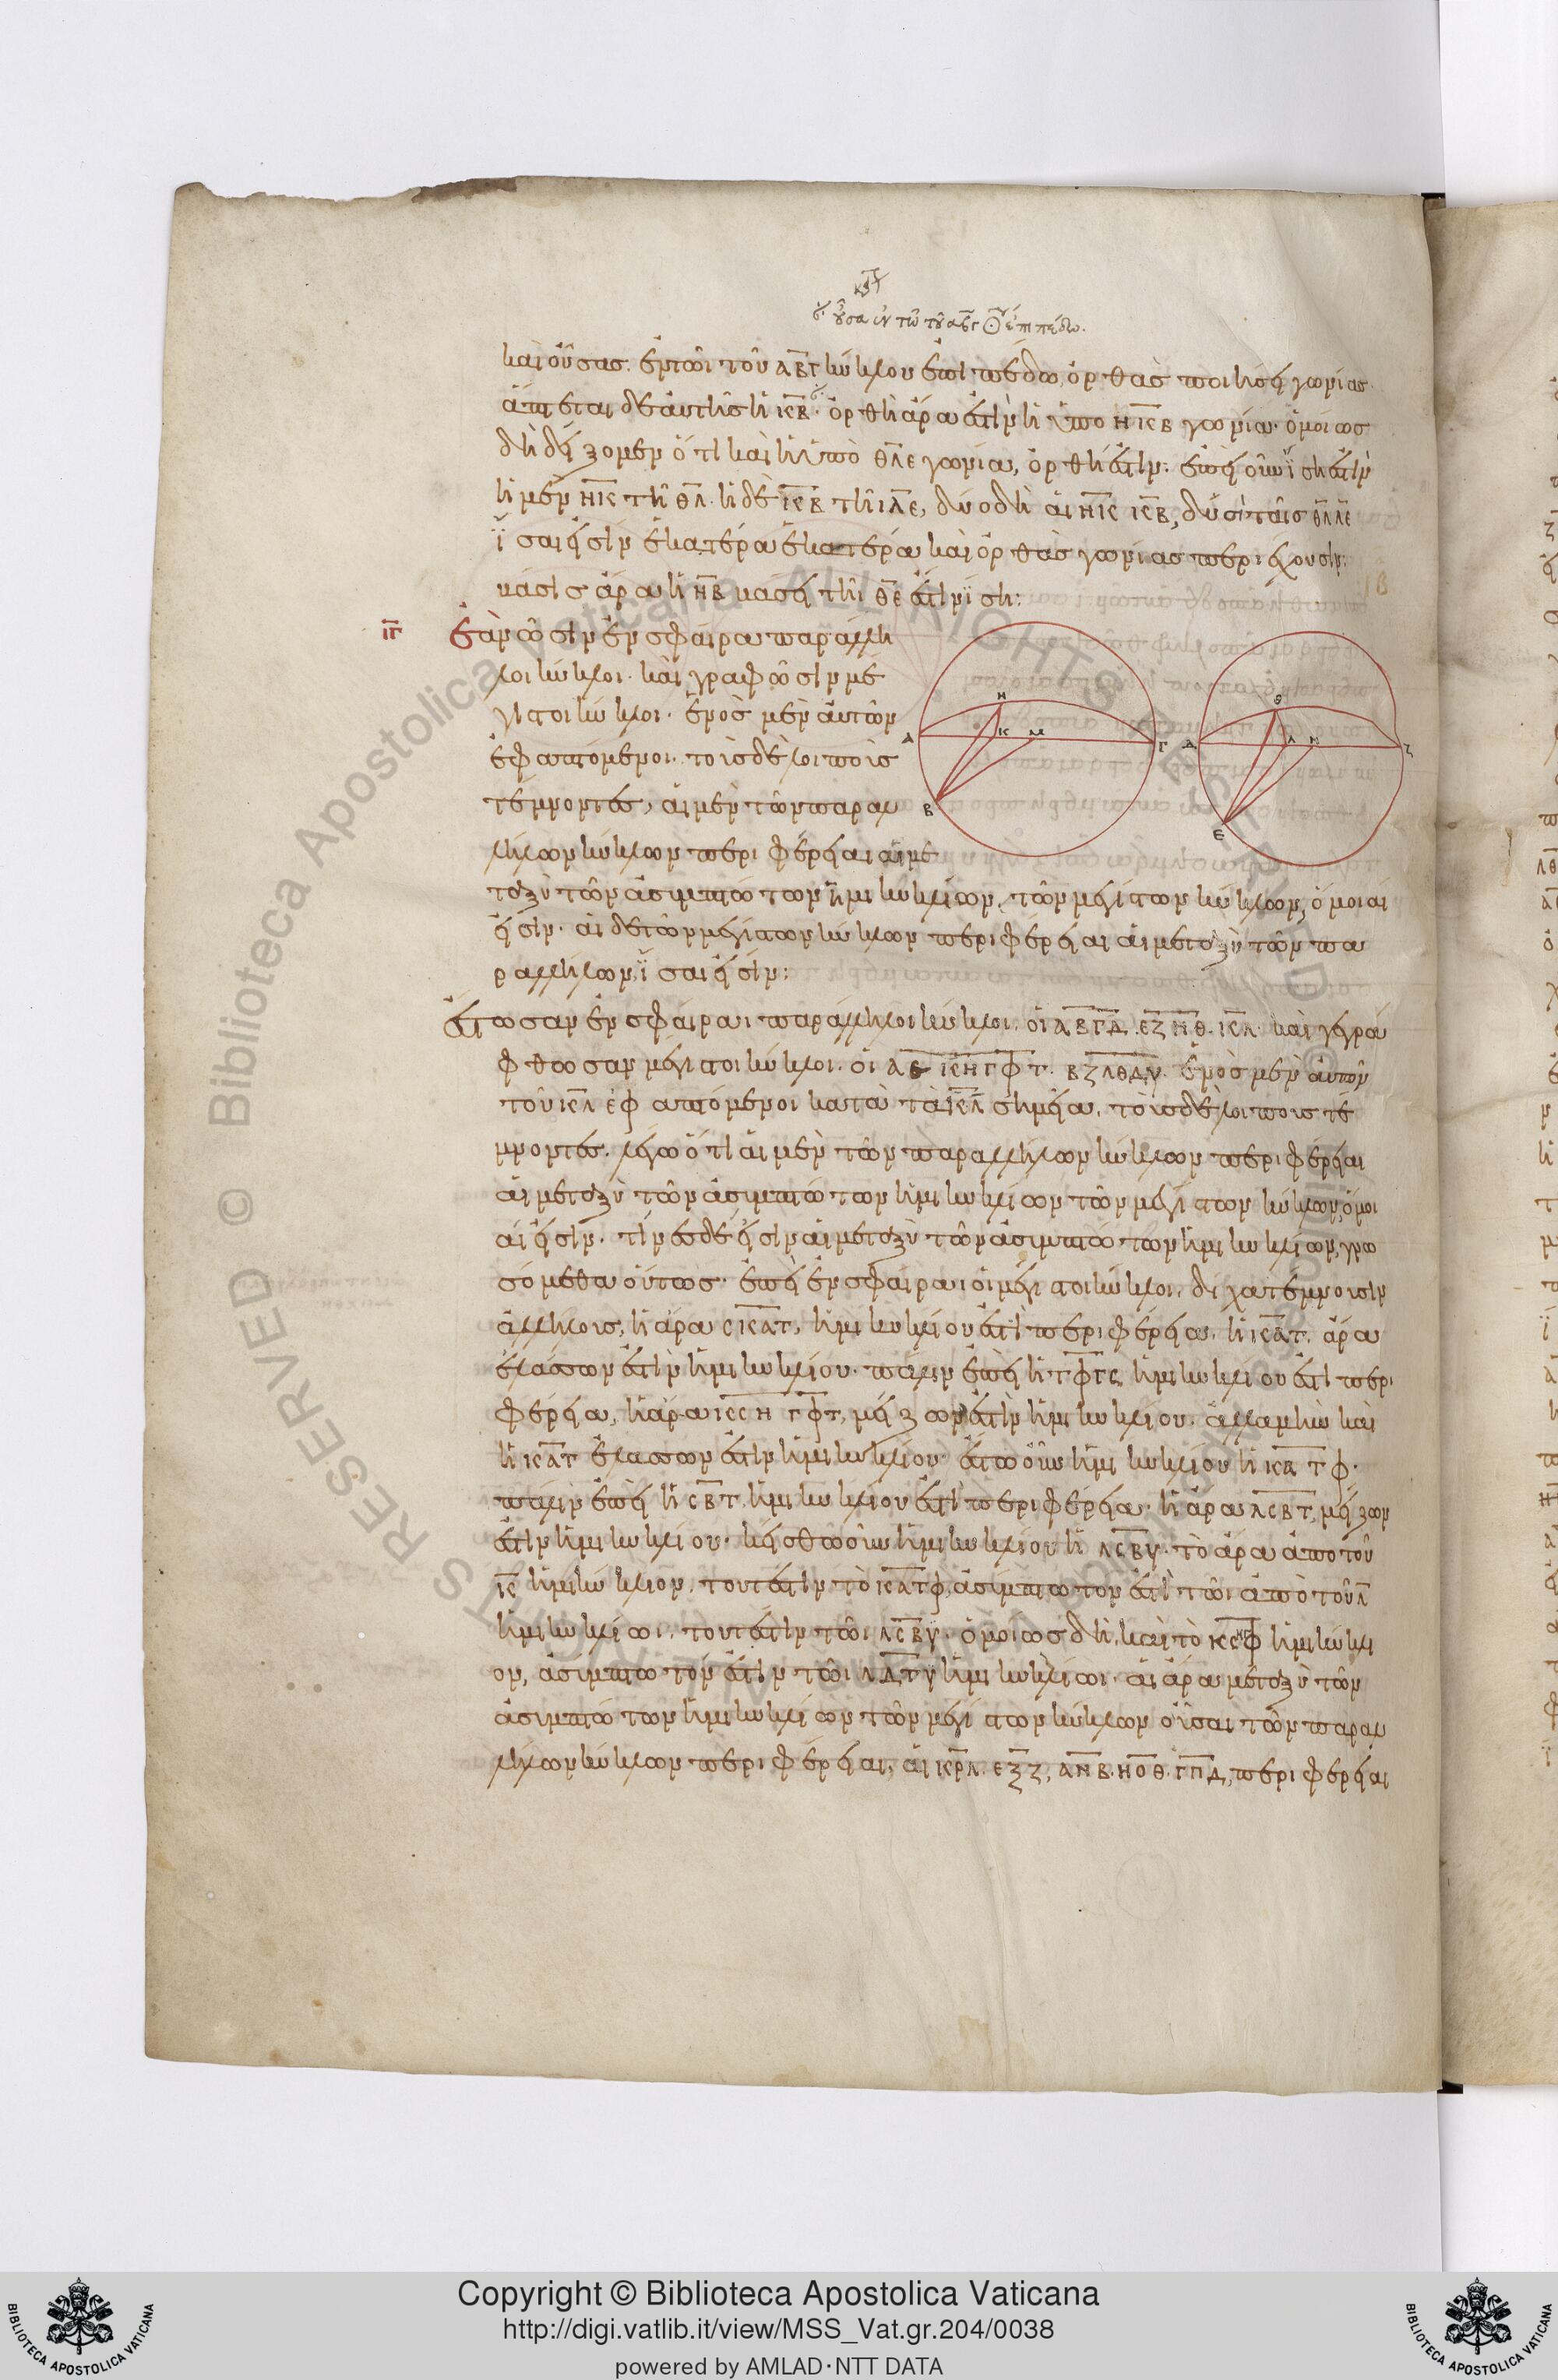 οὖσα ἐν τῶ τοῦ αβγ ἐπιπέδω.
καὶ οὔσας ἐν τῶι τοῦ ΑΒΓ κύκλου ἐπιπέδω, ὀρθὰς ποιήσει γωνίας
ἅπτεται δὲ αὐτῆς ἡ ΚΒ· ὀρθὴ ἄρα ἐστὶν ἡ ὑπο ΗΚΒ γωνία· ὁμοίως
δὴ δείξομεν ὅτι καὶ ἡ ὑπὸ ΘΛΕ γωνία, ὀρθή ἐστιν· ἐπεὶ οὖν ἴση ἐστὶν
ἡ μὲν ΗΚ τῆ ΘΛ· ἡ δὲ ΚΒ τῆι ΛΕ, δύο δὴ αἱ ΗΚ ΚΒ, δυσὶ ταῖς ΘΛ ΛΕ
ἴσαι εἰσὶν ἑκατέρα ἑκατέρα καὶ ὀρθὰς γωνίας περιέχουσιν·
βάσις ἄρα ἡ ΗΒ βάσει τῆι ΘΕ ἐστὶν ἴση:
ΙΓ Ἐὰν ὦσιν ἐν σφαίρα παράλλη
λοι κύκλοι· καὶ γραφῶσιν μέ
γιστοι κύκλοι· ἑνὸς μὲν αὐτῶν
ἐφαπτόμενοι· τοῖς δὲ λοιποῖς
τέμνοντες, αἱ μὲν τῶν παραλ
λήλων κύκλων περιφέρειαι αἱ με
ταξὺ τῶν ἀσυμπτώτων ἡμικυκλίων, τῶν μεγίστων κύκλων, ὅμοιαί
εἰσιν· αἱ δὲ τῶν μεγίστων κύκλων περιφέρειαι αἱ μεταξὺ τῶν πα
ραλλήλων, ἴσαι εἰσίν:
Ἔστωσαν ἐν σφαίραι παράλληλοι κύκλοι· οἱ ΑΒΓΔ· ΕΖΗΘ· ΚΛ· καὶ γεγρά
φθωσαν μέγιστοι κύκλοι· οἱ ΑΕΚΗΓΦΤ· ΒΖΛΘΔΥ· ἑνὸς μὲν αὐτῶν
τοῦ ΚΛ ἐφαπτόμενοι κατὰ τὰ ΚΛ σημεῖα, τοῖς δὲ λοιποῖς τέ
μνοντες· λέγω ὅτι αἱ μὲν τῶν παραλλήλων κύκλων περιφέρειαι
αἱ μεταξὺ τῶν ἀσυμπτώτων ἡμικυκλίων τῶν μεγίστων κύκλων, ὅμοι
αί εἰσιν· τίνες δέ εἰσιν αἱ μεταξὺ τῶν ἀσυμπτώτων ἡμικυκλίων, γνω
σόμεθα οὕτως· ἐπεὶ ἐν σφαίραι οἱ μέγιστοι κύκλοι, δίχα τέμνουσιν
ἀλλήλους, ἡ ἄρα ϹΚΑΤ, ἡμικυκλίου ἐστὶ περιφέρεια· ἡ ΚΑΤ ἄρα
ἐλάσσων ἐστὶν ἡμικυκλίου· πάλιν ἐπεὶ ἡ ΤΦΓϹ ἡμικυκλίου ἐστὶ περι
φέρεια, ἡ ἄρα ΚϹΗΓΦΤ, μείζων ἐστὶν ἡμικυκλίου· ἀλλα μὴν καὶ
ἡ ΚΑΤ ἐλάσσων ἐστὶν ἡμικυκλίου· ἔστω οὖν ἡμικυκλίου ἡ ΚΑΤΦ·
πάλιν ἐπεὶ ἡ ϹΒΤ, ἡμικυκλίου ἐστὶ περιφέρεια· ἡ ἄρα ΛϹΒΤ, μείζων
ἐστὶν ἡμικυκλίου· κείσθω οὖν ἡμικυκλίου ἡ ΛϹΒΥ· τὸ ἄρα ἀπο τοῦ
Κ ἡμικύκλιον, τουτέστιν τὸ ΚΑΤΦ, ἀσύμπτωτον ἐστὶ τῶι ἀπὸ τοῦ Λ
ἡμικυκλίωι, τουτέστιν τῶι ΛϹΒΥ· ὁμοίως δὴ, καὶ τὸ ΚϹΗΓΦ ἡμικύκλι
ον, ἀσύμπτωτόν ἐστιν τῶι ΛΔΤΥ ἡμικυκλίωι· αἱ ἄρα μεταξὺ τῶν
ἀσυμπτώτων ἡμικυκλίων τῶν μεγίστων κύκλων οὖσαι τῶν παραλ
λήλων κύκλων περιφέρειαι, αἱ ΚΡΛ· ΕΞΖ, ΑΝΒ· ΗΟΘ· ΓΠΔ, περιφέρειαι
Α Η Κ Μ Γ Β
Δ Θ Λ Ν Ζ Ε
Biblioteca Apostolica Vaticana ALL RIGHTS RESERVED ©
Copyright © Biblioteca Apostolica Vaticana
http://digi.vatlib.it/view/MSS_Vat.gr.204/0038
powered by AMLAD·NTT DATA
BIBLIOTECA APOSTOLICA VATICANA
BIBLIOTECA APOSTOLICA VATICANA